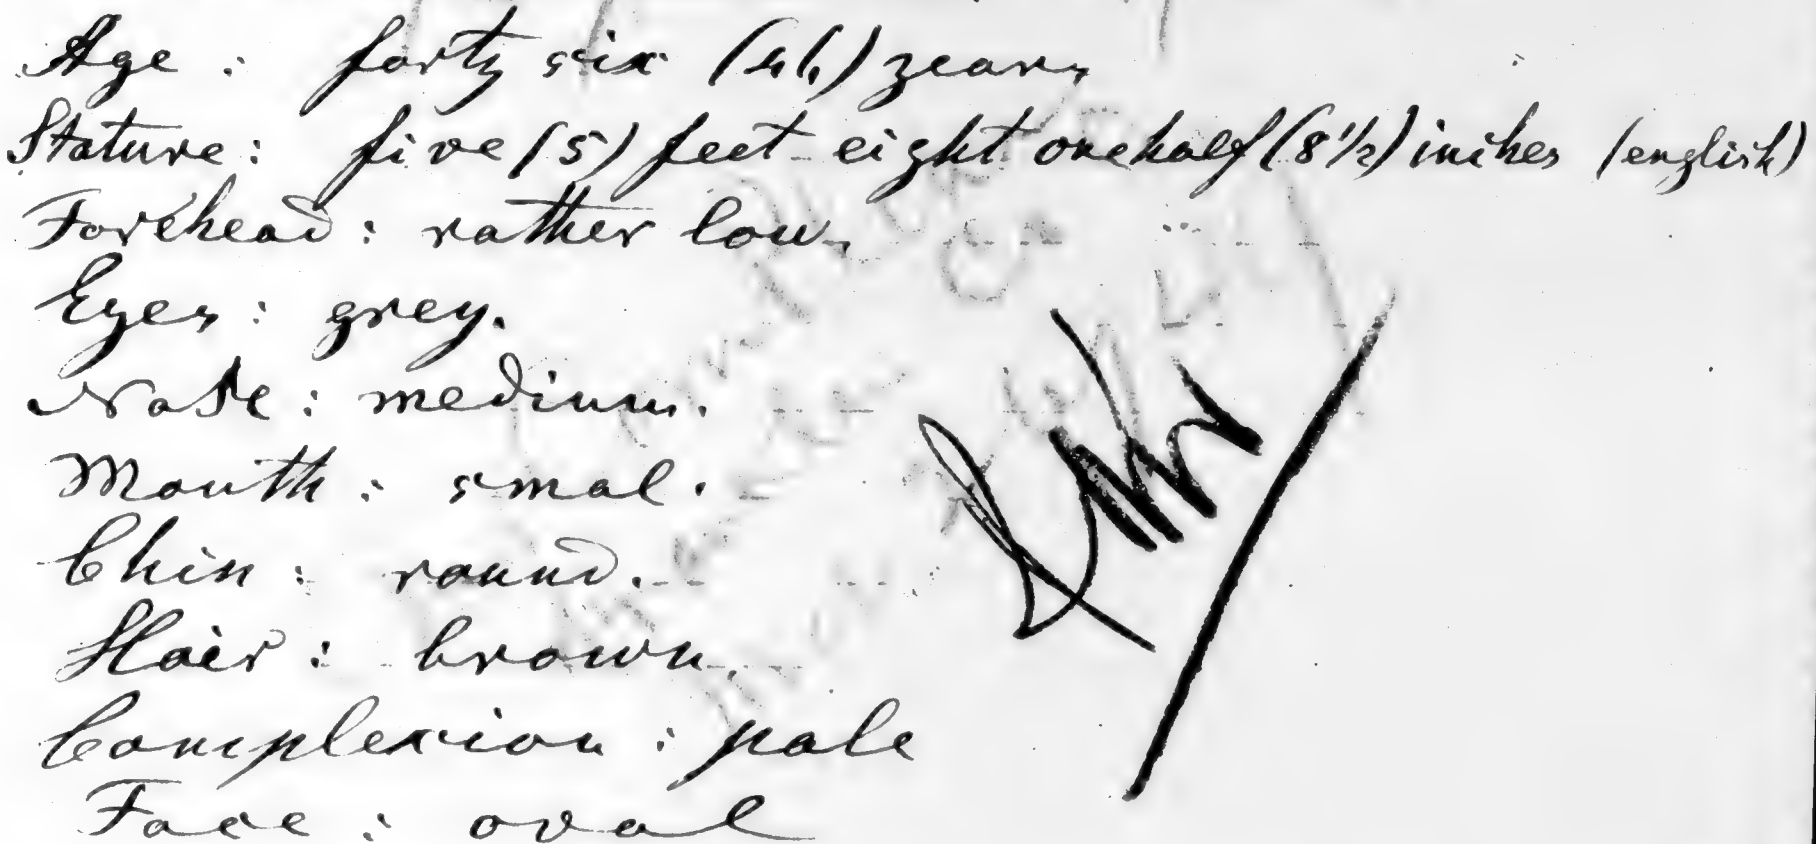 Age : forty six (46) years
Stature : five (5) feet eight one half (8 1/2) inches (english)
Forehead : rather low.
Eyes : grey.
Nose : medium.
Mouth : smal.
Chin : round.
Hair : brown.
Complexion : pale
Face : oval